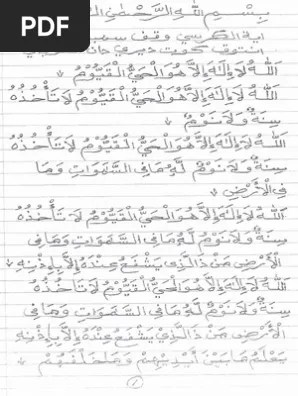 PDF
بِسْمِ اللهِ الرَّحْمٰنِ
اية الكرسي وقف
اَللهُ لَا إِلٰهَ إِلَّا هُوَ الْحَيُّ الْقَيُّوْمُ
اَللهُ لَا إِلٰهَ إِلَّا هُوَ الْحَيُّ الْقَيُّوْمُ لَا تَأْخُذُهُ
سِنَةٌ وَلَا نَوْمٌ
اَللهُ لَا إِلٰهَ إِلَّا هُوَ الْحَيُّ الْقَيُّوْمُ لَا تَأْخُذُهُ
سِنَةٌ وَلَا نَوْمٌ لَهُ مَا فِي السَّمٰوَاتِ وَمَا
فِي الْأَرْضِ
اَللهُ لَا إِلٰهَ إِلَّا هُوَ الْحَيُّ الْقَيُّوْمُ لَا تَأْخُذُهُ
سِنَةٌ وَلَا نَوْمٌ لَهُ مَا فِي السَّمٰوَاتِ وَمَا فِي
الْأَرْضِ مَنْ ذَا الَّذِي يَشْفَعُ عِنْدَهُ إِلَّا بِإِذْنِهِ
اَللهُ لَا إِلٰهَ إِلَّا هُوَ الْحَيُّ الْقَيُّوْمُ لَا تَأْخُذُهُ
سِنَةٌ وَلَا نَوْمٌ لَهُ مَا فِي السَّمٰوَاتِ وَمَا فِي
الْأَرْضِ مَنْ ذَا الَّذِي يَشْفَعُ عِنْدَهُ إِلَّا بِإِذْنِهِ
يَعْلَمُ مَا بَيْنَ أَيْدِيْهِمْ وَمَا خَلْفَهُمْ